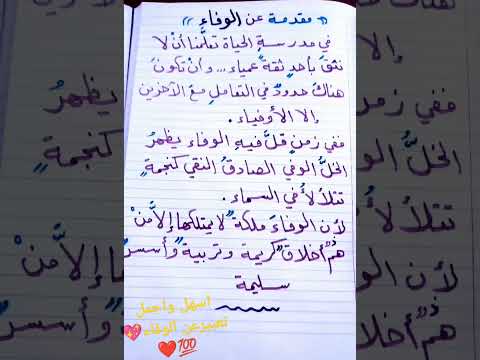 « مقدمة عن الوفاء »
في مدرسةِ الحياة تعلَّمنا أنْ لا
نثقَ بأحدٍ ثقةً عمياء... وأنْ تكونَ
هناكَ حدودٌ في التعاملِ معَ الآخرين
إلا الأوفياء.
ففي زمنٍ قلَّ فيهِ الوفاء يظهرُ
الخلُّ الوفيُّ الصادقُ النقي كنجمةٍ
تتلألأُ في السماء.
لأن الوفاءَ ملكةٌ لا يمتلكها إلاَّ منْ
همْ أخلاقٌ كريمة وتربيةٌ وأسسٌ
سليمة
اسهل واجمل
تعبير عن الوفاء💖
❤️💯